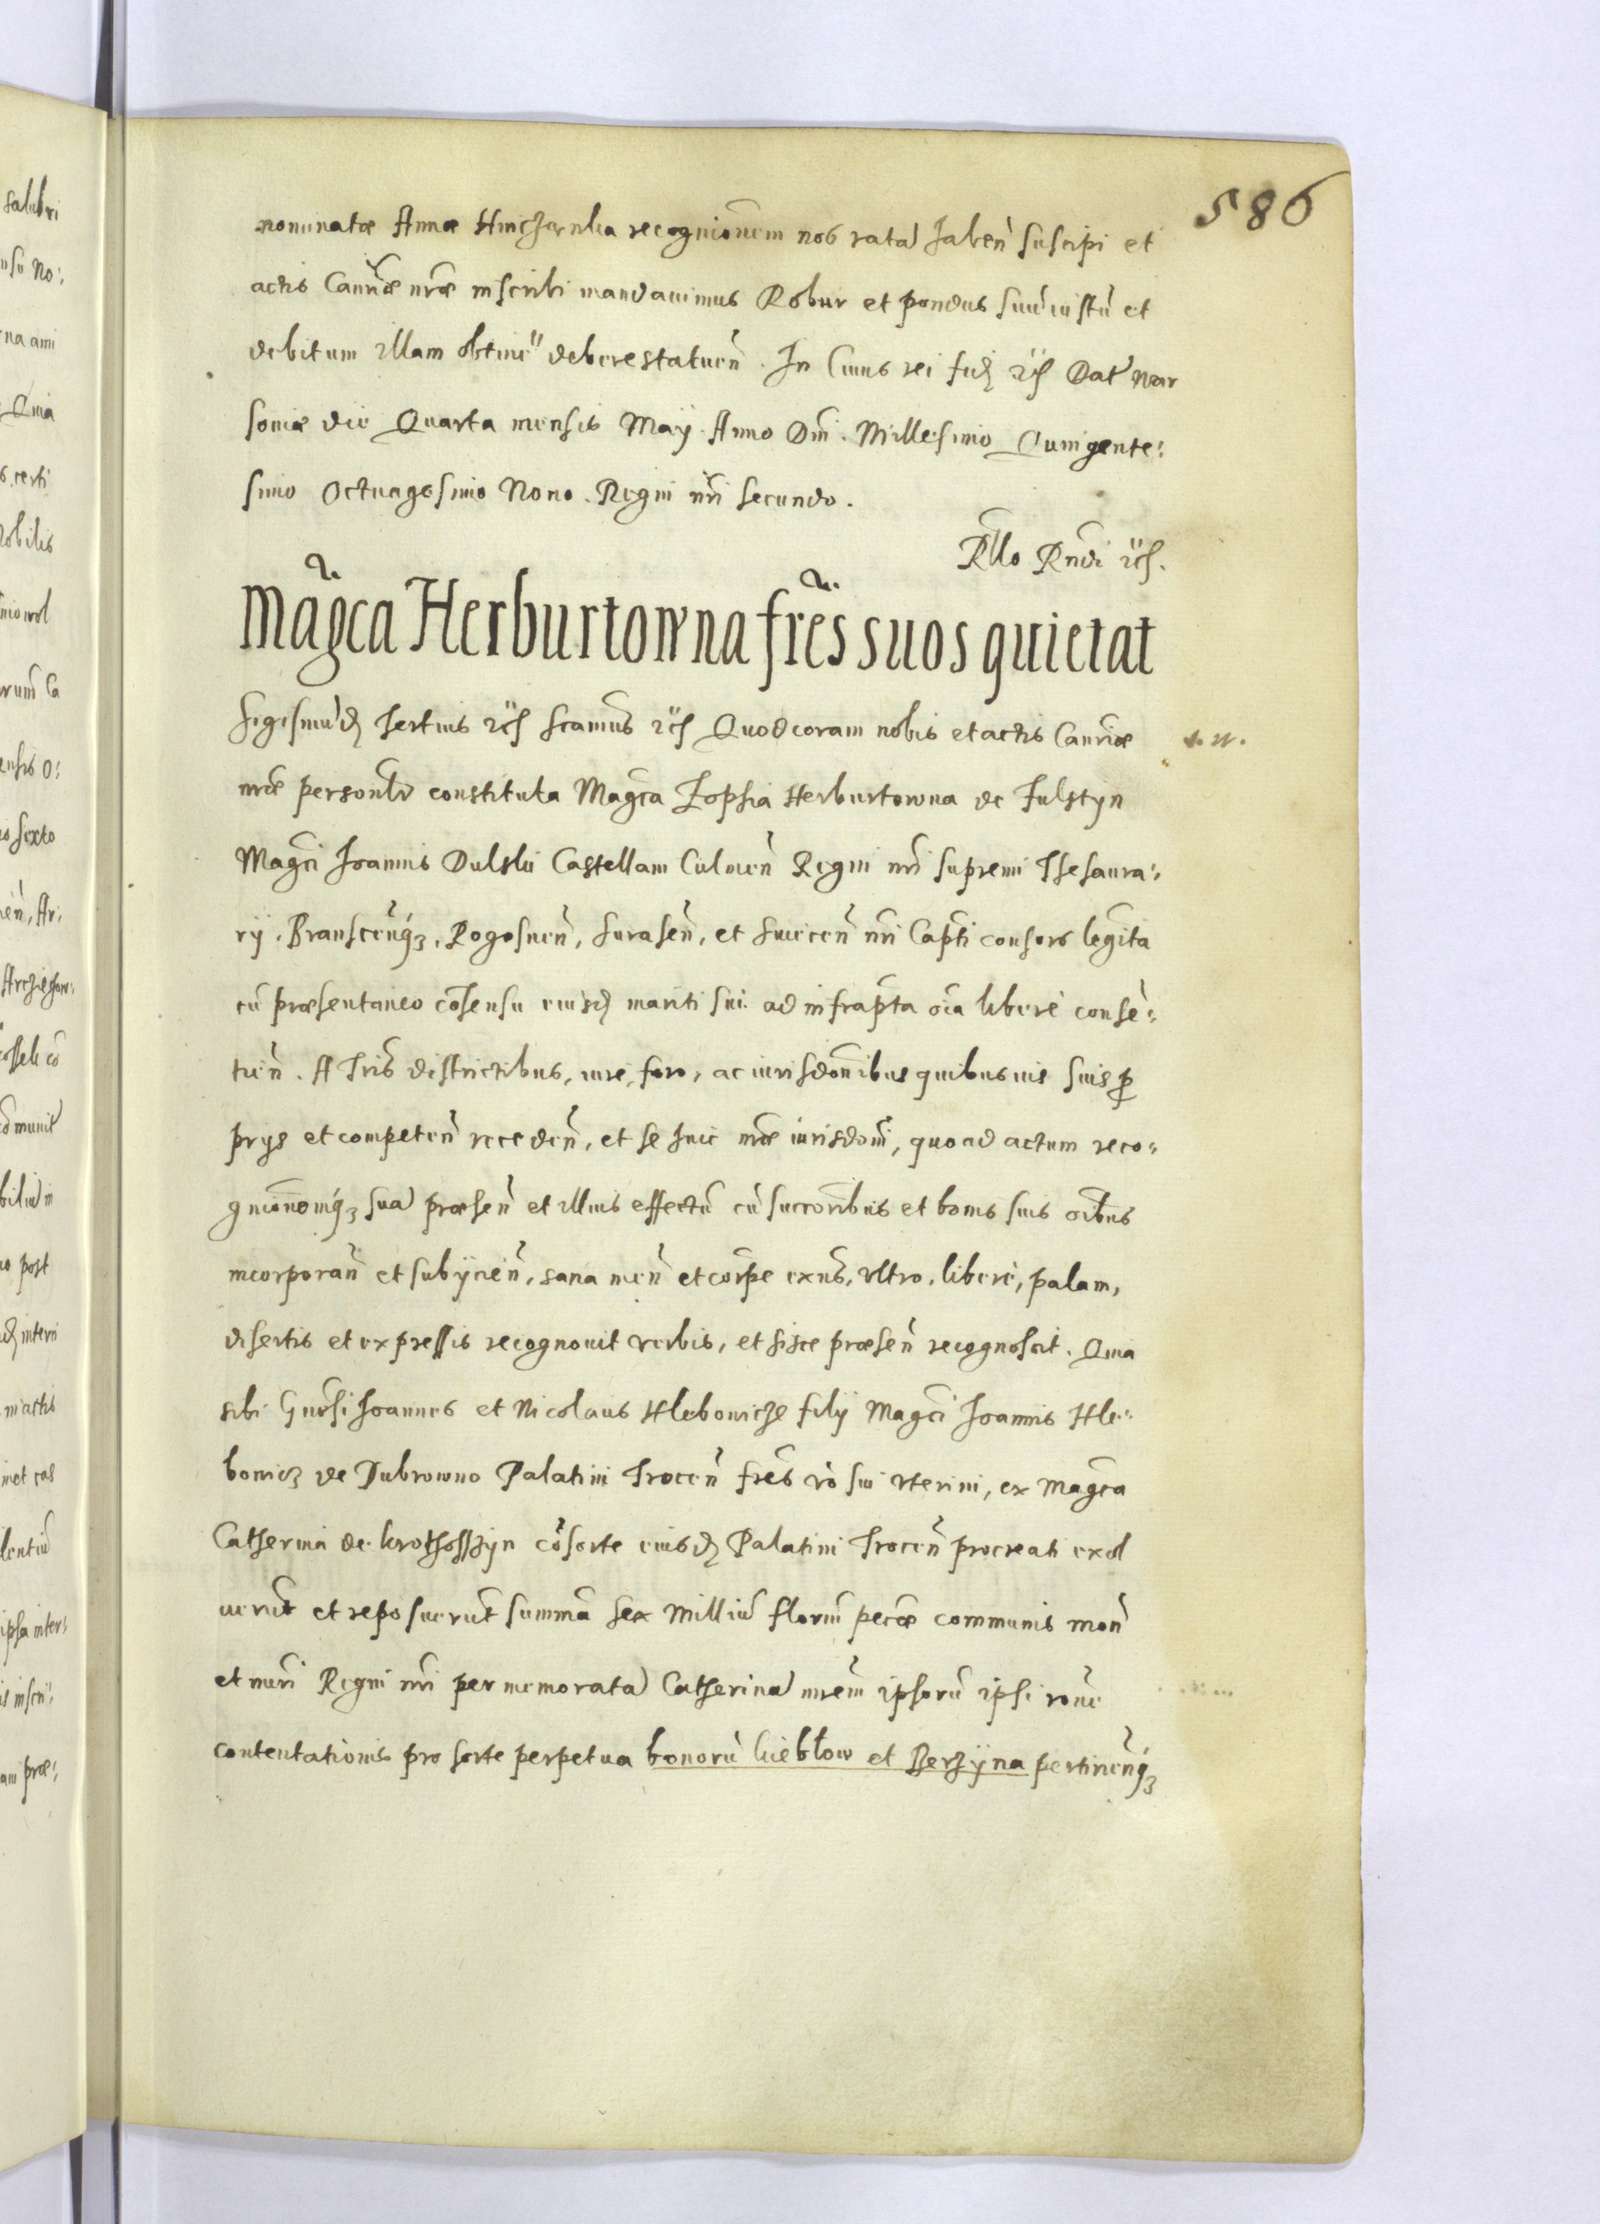 586
nominatæ Annæ Hinczernka recognicionem nos ratã habeñ suscipi et
actis Canriæ nræ inscribi mandauimus Robur et pondus suũ iustũ et
debitum illam obtinẽ debere statueñ. In Cuius rei fid ꝛc̃ Dat War
soviæ die Quarta mensis Maÿ. Anno Dni. Millesimo Quingente:
simo Octuagesimo Nono. Regni nri secundo.
Rllo Rndi ꝛc̃.
Magca Herburtowna fres suos quietat
Sigismũd Tertius ꝛc̃ scamus ꝛc̃ Quod coram nobis et actis Canriæ
nræ personlr constituta Magca Zophia Herburtowna de Fulstyn
Magci Joannis Dulski Castellani Culmeñ Regni nri supremi Thesaura:
rÿ, Bransceñqꝫ, Rogosneñ, Suraseñ, et Suieceñ nri Capti consors legita
cũ præsentaneo cõsensu eiusd mariti sui ad infrapta oĩa liberè consẽ:
tieñ. A Tris districtibus, iure, foro, ac iurisdonibus quibusuis suis ꝓ
prÿs et competeñ recedeñ, et se huic nræ iurisdoni, quo ad actum reco:
gnicionemqꝫ suã præseñ et illius effectũ cũ succoribus et bonis suis oibus
incorporañ et subÿcieñ, sana meñ et corpe exñs, vltro, liberè, palam,
disertis et expressis recognouit verbis, et hisce præseñ recognoscit. Quia
sibi Gnrsi Joannes et Nicolaus Hlebowicze filÿ Magci Joannis Hle:
bowicz de Dubrowno Palatini Troceñ fres vo sui vterini, ex Magca
Catherina de Krothosszyn cõsorte eiusd Palatini Troceñ procreati exol
uerũt et reposuerũt summã sex Milliũ floriũ pecæ communis moñ
et nuri Regni nri per memoratã Catherinã mrem ipsorũ ipsi rõne
contentationis pro sorte perpetua bonorũ Kiebłow et Berzyna pertineñqꝫ